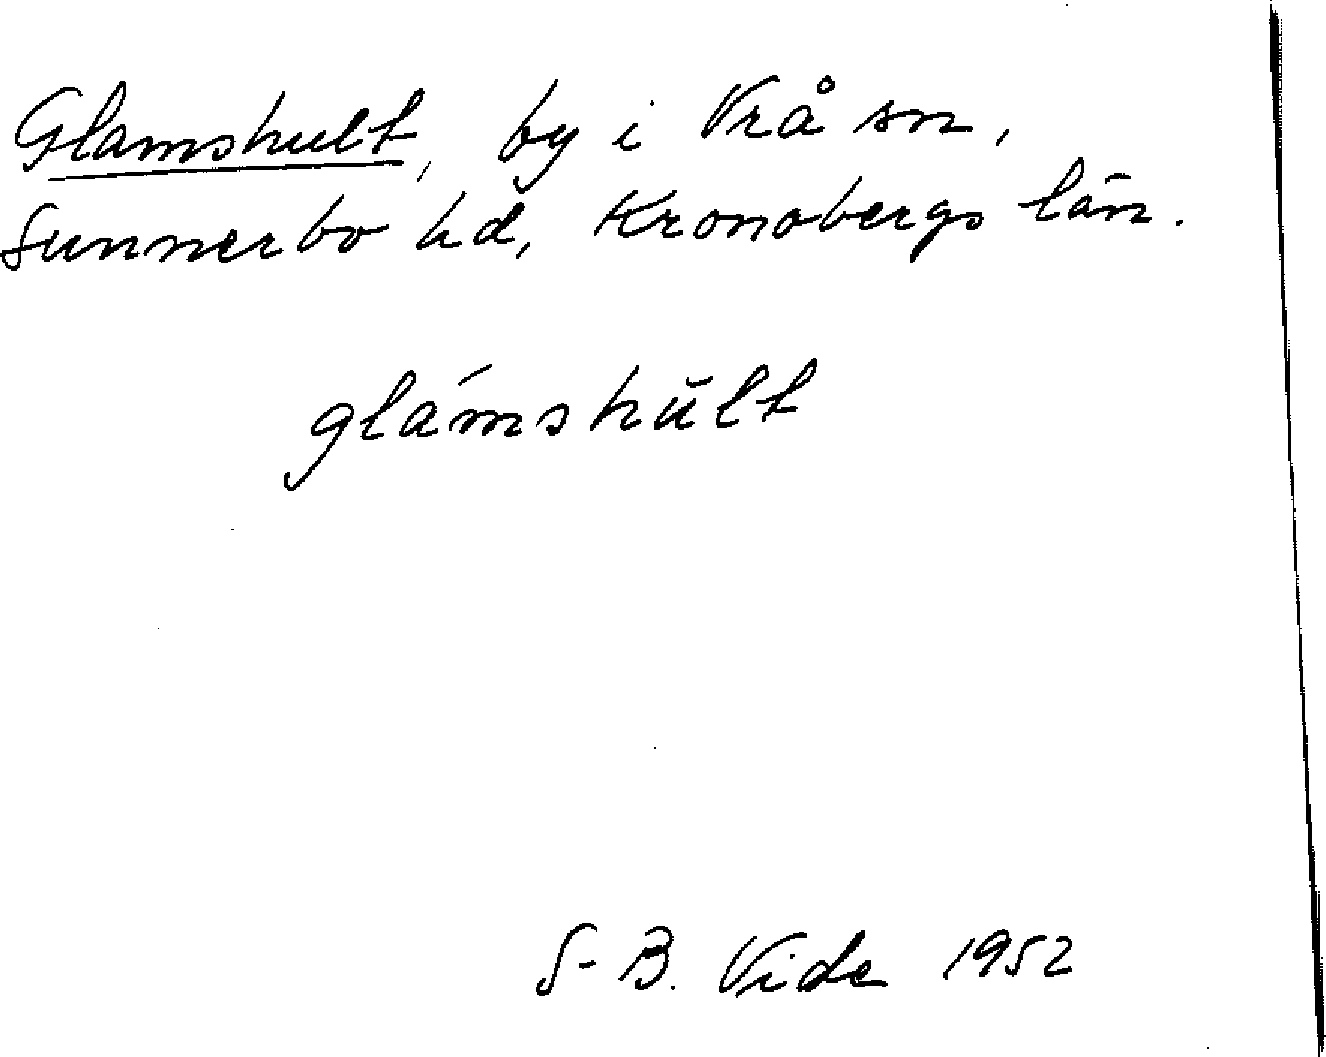 Glamshult, by i Vrå sn,
Sunnerbo hd, Kronobergs län.
glámshŭlt
S-B. Vide 1952